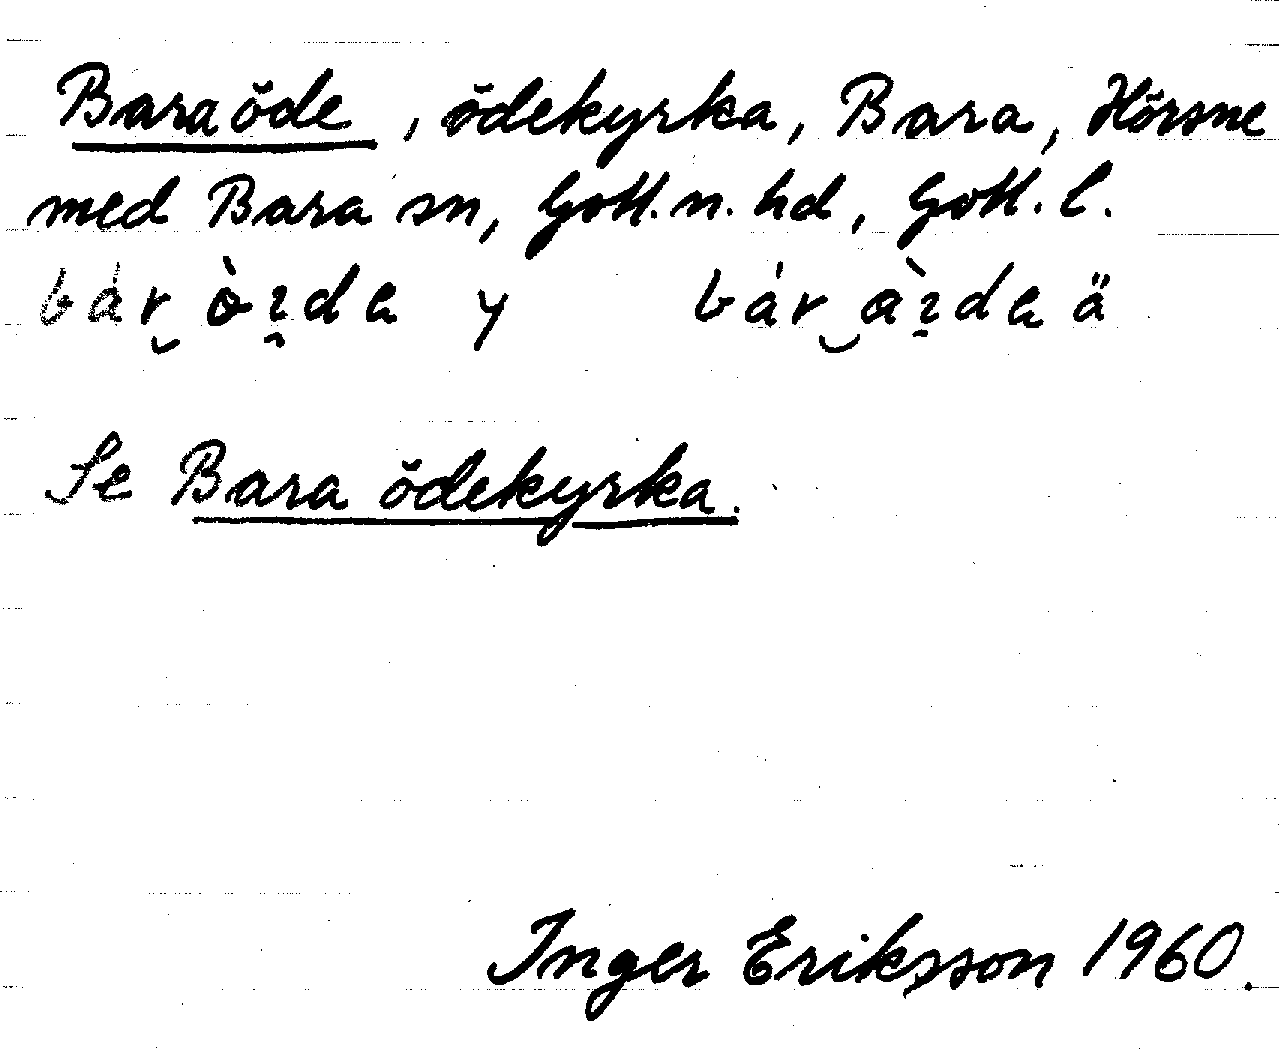 Bara öde, ödekyrka, Bara, Hörsne
med Bara sn, Gotl. n. hd, Gotl. l.
y ä
Se Bara ödekyrka.
Inger Eriksson 1960.